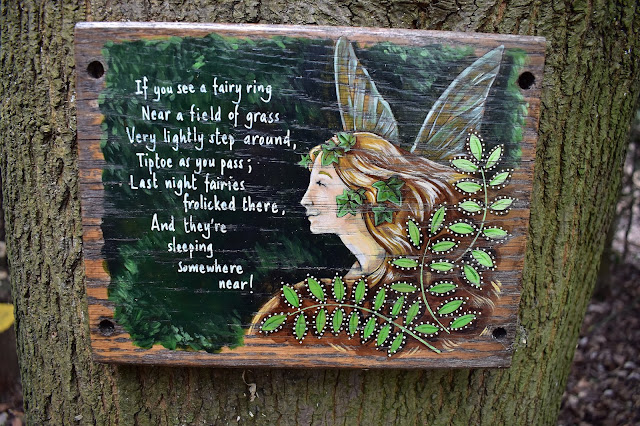 If you see a fairy ring
Near a field of grass
Very lightly step around,
Tiptoe as you pass;
Last night fairies
frolicked there,
And they're
sleeping
somewhere
near!